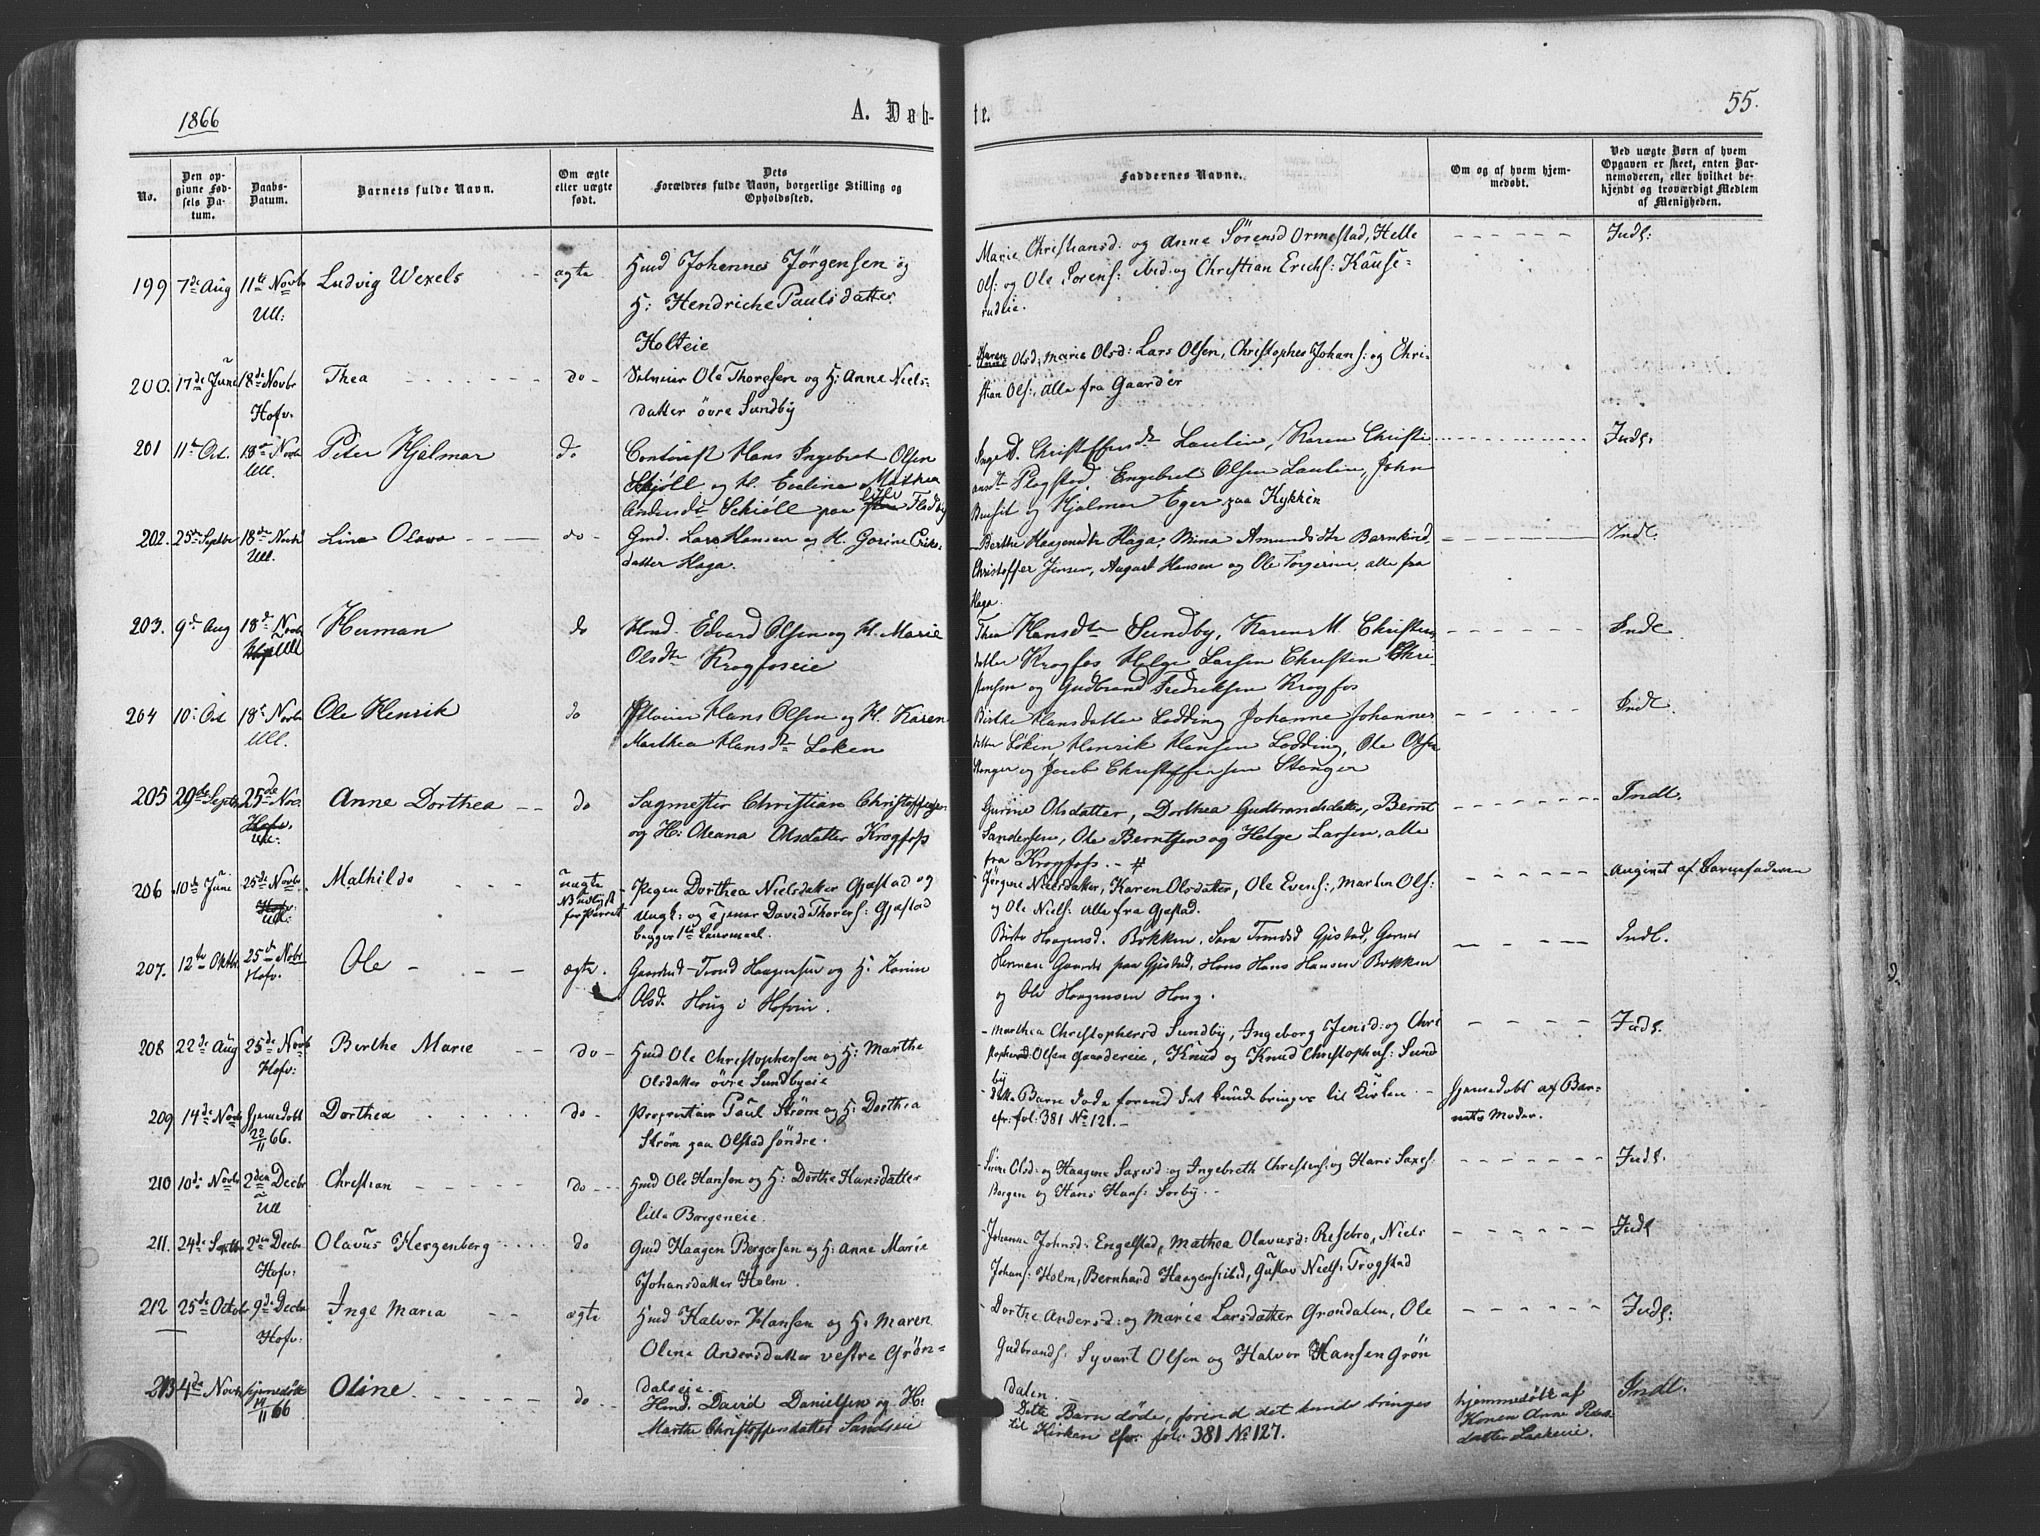 1866
A. Døb-
te.
55.
No.
Den op-
givne Fød-
sels Da-
tum.
Daabs-
Datum.
Barnets fulde Navn.
Om ægte
eller uægte
født.
Dets
Forældres fulde Navn, borgerlige Stilling og
Opholdssted.
Faddernes Navne.
Om og af hvem hjem-
medøbt.
Ved uægte Børn af hvem
Opgaven er skeet, enten Bar-
nemoderen, eller hvilket be-
kjendt og troværdigt Medlem
af Menigheden.
199 7de Aug 11te Novb Ludvig Wexels ægte Hmd Johennes Jörgensen og
Ull:
H: Hendriche Paulsdatter
Holteie
Marie Christiansd: og Anne Sörensd Ormestad, Helle
Ols: og Ole Sorens: ibid: og Christian Erichs: Kause-
rudeie.
Indl:
200. 17de June 18de Novbr Thea do Selveier Ole Thoresen og H: Anne Niels-
Hofv.
datter övre Sundby
Karen Olsd, Marie Olsd: Lars Olsen, Christopher Johans: og Chri-
stian Ols:, alle fra Gaarder
201 11te Oct. 18de Novb Peter Hjalmar do Hans Ingebret Olsen
Ull.
Skjöll og H. Evelina Mathea
Andersdtr Schiöll paa lille Fladby
Inge D. Christoffersdtr Laulin, Karen Christi
ansdtr Plogstad Engebret Olsen Laulin, John
og Hjalmar Eger paa Kykken
Indl:
202. 25de Septbr 18de Novbr Lina Olava do Gmd. Lars Hansen og H. Gorine Erik-
Ull.
datter Haga.
Berthe Haagensdtr Haga, Mina Amundsdtr Barnkind,
Christoffer Jensen, August Hansen og Ole Torgersen, alle fra
Haga.
Indl.
203. 9de Aug 18de Novbr Herman do Hmd. Edvard Olsen og H. Marie
Ull
Olsdtr Krogfoseie
Thea Hansdtr Sundby, Karen M. Christens
datter Krogfos Helge Larsen Christen Chri-
stensen og Gudbrand Fredriksen Krogfos
Indl.
204 10: Oct 18de Novbr Ole Henrik do Selveier Hans Olsen og H. Karen
Ull.
Marthea Hansdtr Løken
Birthe Hansdatter Lodding Johanne Johannes
datter Løken Henrik Hansen Lodding, Ole Olsen
Stenger og Jacob Christoffersen Stenger
Indl.
205 29de Septbr 25de Nov. Anne Dorthea do Sagmester Christian Christoffersen
Hofv.
Ull:
og H: Oleana Olsdatter Krogfoss
Gurine Olsdatter, Dorthea Gudbrandsdatter, Bernt
Sandersen, Ole Berntsen og Helge Larsen, alle
fra Krogfoss. - #
Indl.
206 10de June 25de Novbr. Mathilde uægte Pigen Dorthea Nielsdatter Gjæstad og
Hofv.
Ull:
Ungk: og Tjener David Thorers: Gjæstad
begges 1ste Leiermaal.
Jørgene Nielsdatter, Karen Olsdatter, Ole Evens:, Marten Ols:
og Ole Niels: alle fra Gjæstad.
Angivet af Barnefaderen
207. 12te Oktbr 25de Novbr Ole ægte. Gaardmd Trond Haagensen og H. Karen
Hofv.
Olsd. Houg i Hofvin.
Birte Haagensd. Bokken, Sara Trondsd Gjæstad, Gorner
Herman Gaarder paa Gjæstad, Hans Hansen Bokken
og Ole Haagensen Houg.
Indl.
208 22de Aug 25de Novb Berthe Marie do Hmd Ole Christophersen og H: Marthe
Hofv:
Olsdatter övre Sundbyeie
Marthea Christophersd Sundby, Ingeborg Jensd: og Chri
stopher Olsen Gaardereie, Knud og Knud Christophers: Sund
by
Indl.
209 14de Novb Hjemedøbt Dorthea do Proprietair Paul Strøm og H: Dorthea
22/11 66.
Strøm paa Olstad söndre.
dette Barn døde forend det kunde bringes til Kirken
cfr: fol: 381 No 121.
Hjemedøbt af Bar-
nets Moder.
210 10de Novbr 2den Decbr Christian do Hmd Ole Hansen og H: Dorthe Hansdatter
Ull
lille Borgeneie.
Sirine Olsd: og Haagene Saxesd: og Ingebreth Christens: og Hans Saxes:
Borgen og Hans Hans: Sorby.
Indl.
211. 24de Septbr 2den Decbr Olavus Herzenberg do Gmd Haagen Bergersen og H: Anne Marie
Hofv:
Johansdatter Holm.
Johanne Johnsd: Engelstad, Mathea Olavusd: Risebro, Niels
Johans: Holm, Bernhard Haagens: ibid, Gustav Niels: Trogstad
Indl
212 25de Octobr 9de Decbr Inge Maria ægte Hmd Halvor Hansen og H: Maren
Hofv:
Oline Andersdatter vestre Grøn-
dalseie.
Dorthe Andersd: og Marie Larsdatter Grøndalen, Ole
Gudbrands: Syvart Olsen og Halvor Hansen Grøn
dalen.
Indl:
213 4de Novbr hjemedøbt Oline do Hmd. David Danielsen og H:
11/11 66
Marthe Christoffersdatter Sandseie
Dette Barn døde, forend det kunde bringes
til Kirken cfr. fol: 381 No 127.
hjemmedøbt af
Konen Anne Peders
datter Laakeeie.
Indl.